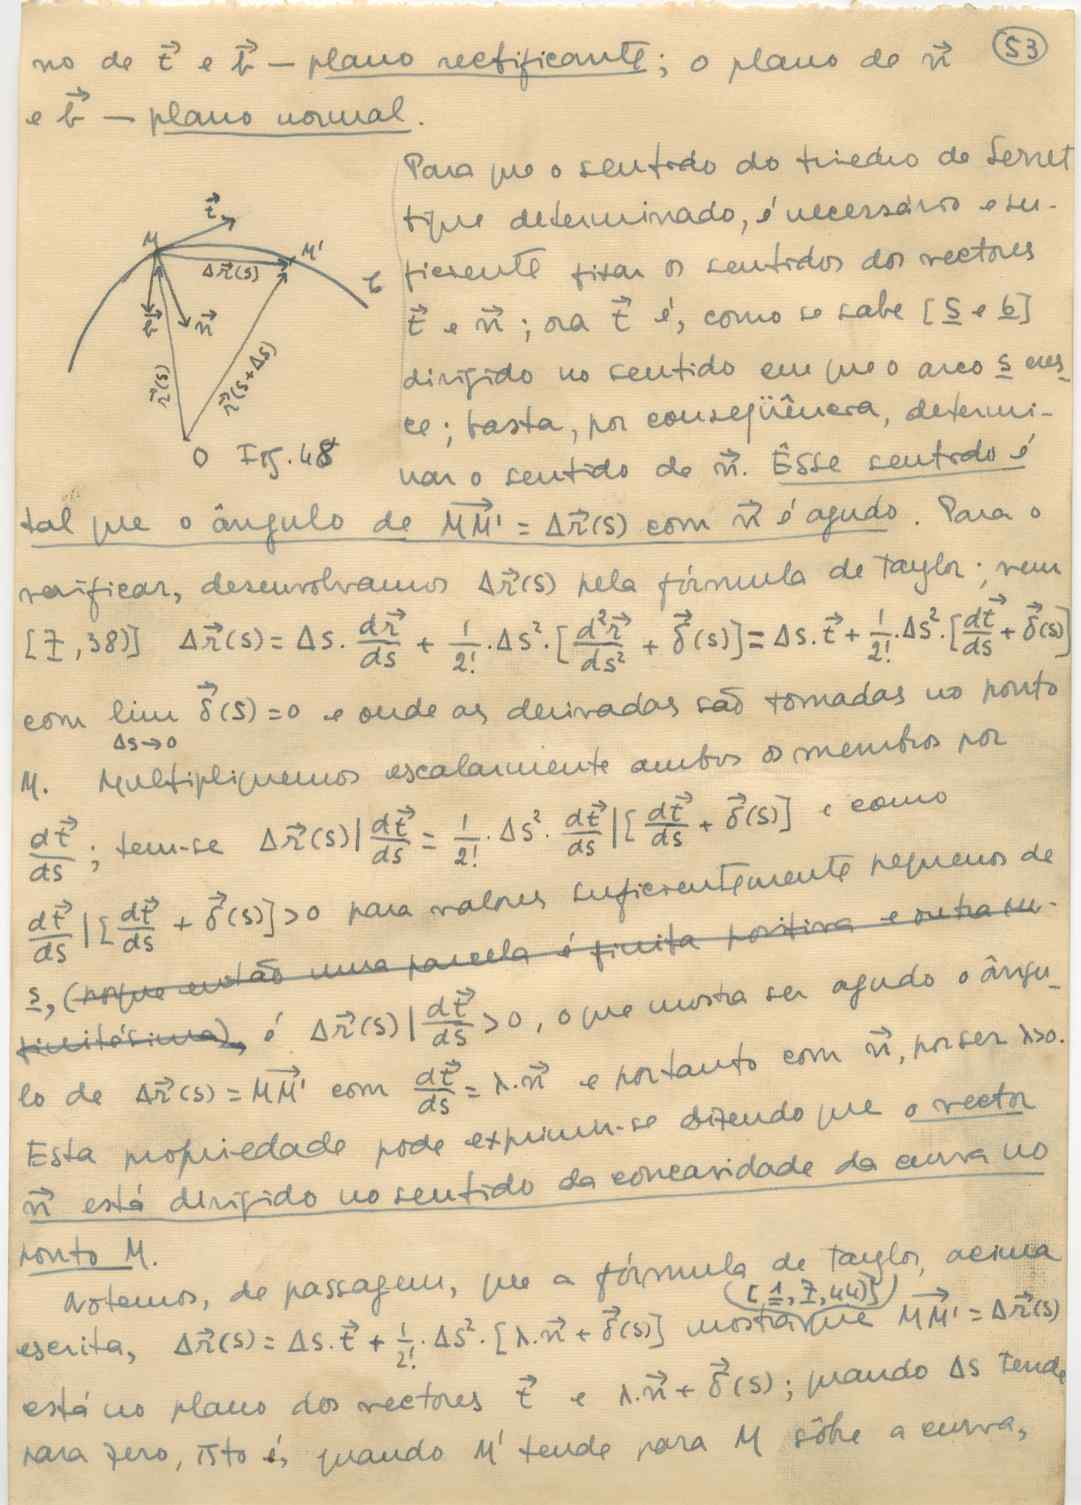 53
no de t⃗ e b⃗ — plano rectificante; o plano de n⃗
e b⃗ — plano normal.
Para que o sentido do triedro de Serret
fique determinado, é necessário e su-
ficiente fixar os sentidos dos vectores
t⃗ e n⃗; ora t⃗ é, como se sabe [5 e 6]
dirigido no sentido em que o arco s cres-
ce; basta, por conseqüência, determi-
nar o sentido de n⃗. Êsse sentido é
t⃗
M
M'
Δr⃗(s)
n⃗
r⃗(s)
r⃗(s+Δs)
O Fig. 48
tal que o ângulo de MM'⃗ = Δr⃗(s) com n⃗ é agudo. Para o
verificar, desenvolvamos Δr⃗(s) pela fórmula de Taylor; vem
[7, 38)] Δr⃗(s) = Δs · dr⃗/ds + 1/2! · Δs² · [d²r⃗/ds² + δ⃗(s)] = Δs · t⃗ + 1/2! · Δs² · [dt⃗/ds + δ⃗(s)]
com lim δ⃗(s) = 0 e onde as derivadas são tomadas no ponto
Δs→0
M. Multipliquemos escalarmente ambos os membros por
dt⃗/ds; tem-se Δr⃗(s) | dt⃗/ds = 1/2! · Δs² · dt⃗/ds | [dt⃗/ds + δ⃗(s)] e como
dt⃗/ds | [dt⃗/ds + δ⃗(s)] > 0 para valores suficientemente pequenos de
s, (porque então uma parcela é finita positiva e outra in-
finitésima), é Δr⃗(s) | dt⃗/ds > 0, o que mostra ser agudo o ângu-
lo de Δr⃗(s) = MM'⃗ com dt⃗/ds = λ·n⃗ e portanto com n⃗, por ser λ>0.
Esta propriedade pode exprimir-se dizendo que o vector
n⃗ está dirigido no sentido da concavidade da curva no
ponto M.
Notemos, de passagem, que a fórmula de Taylor, acima
([1, 7, 44)])
escrita, Δr⃗(s) = Δs · t⃗ + 1/2! · Δs² · [λ·n⃗ + δ⃗(s)] mostra que MM'⃗ = Δr⃗(s)
está no plano dos vectores t⃗ e λ·n⃗ + δ⃗(s); quando Δs tende
para zero, isto é, quando M' tende para M sôbre a curva,